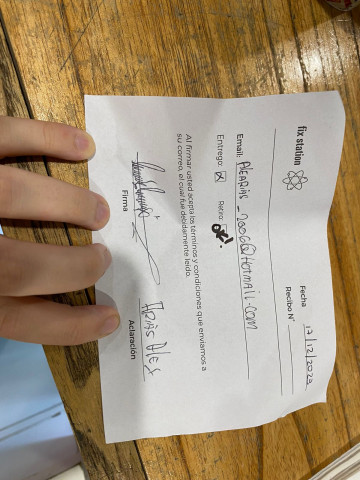 fix station
Fecha 17/12/2020
Recibo N°
Email: AleAriis_2006@Hotmail.com
Entrego: ☒ Retiro:
Al firmar usted acepta los términos y condiciones que enviamos a
su correo, el cual fue debidamente leído.
Ariis Ales
Firma Aclaración